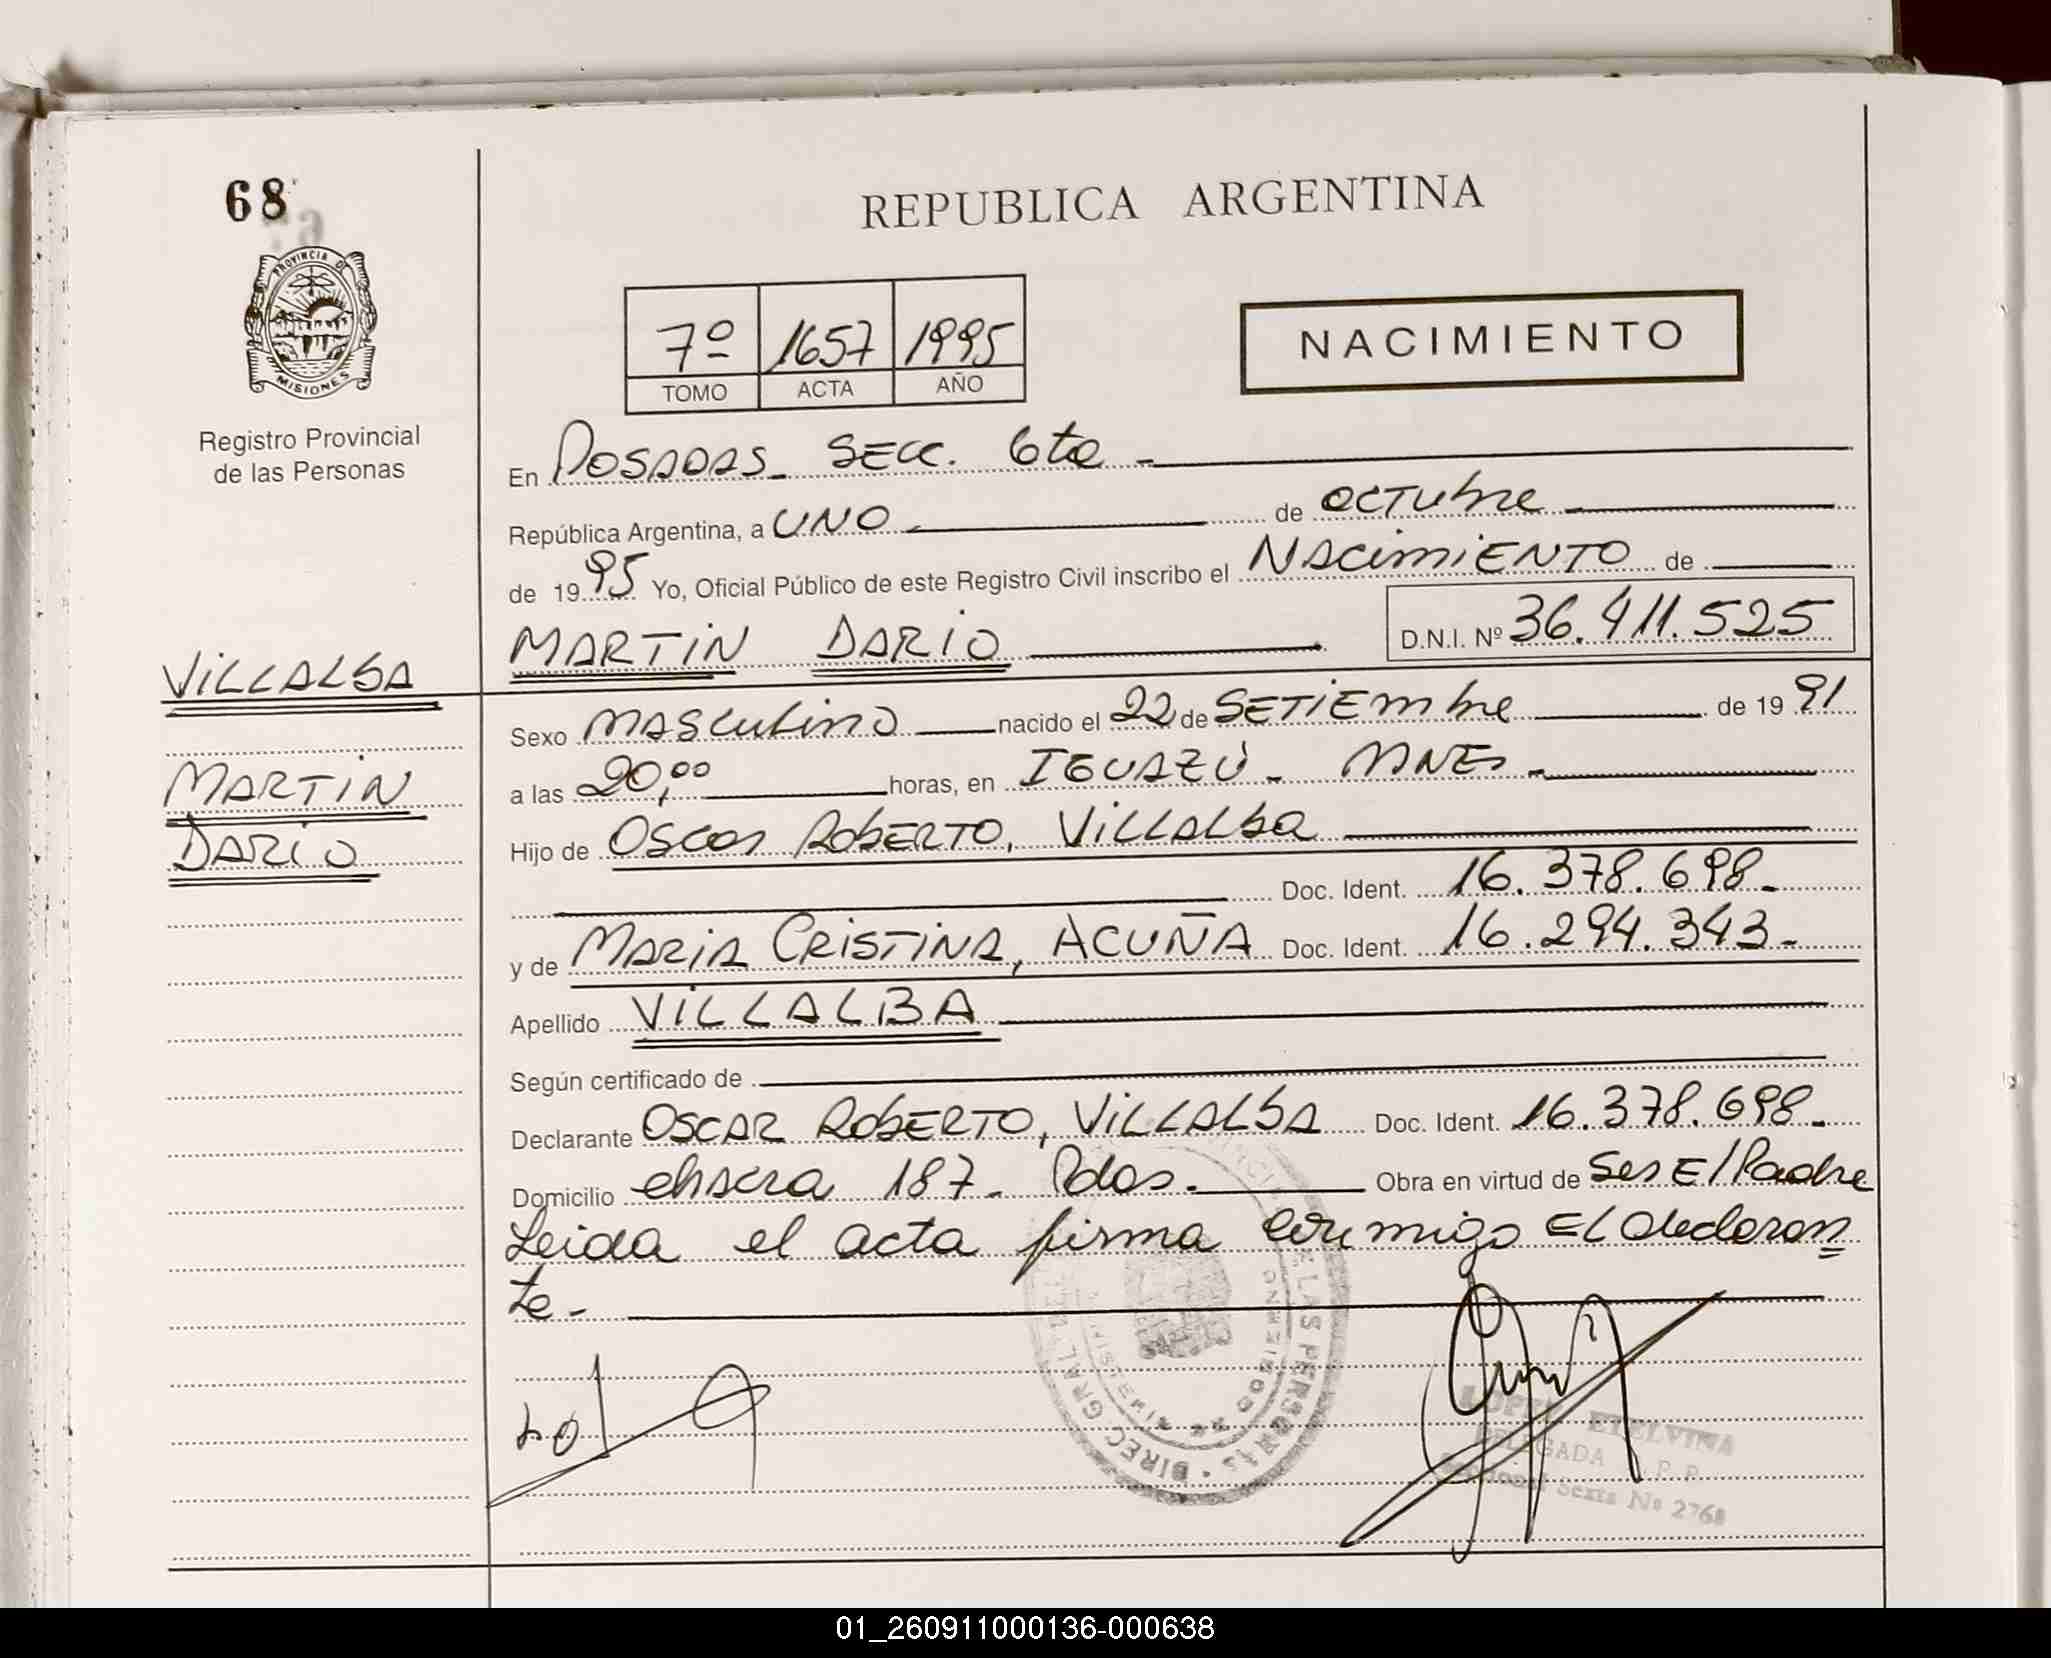 68
REPUBLICA ARGENTINA
PROVINCIA D
MISIONES
Registro Provincial
de las Personas
7º 1657 1995
TOMO ACTA AÑO
NACIMIENTO
En POSADAS_ SECC. 6ta -
República Argentina, a UNO de OCTUbre
de 1995 Yo, Oficial Público de este Registro Civil inscribo el NACimiENTO de
MARTiN DARiO D.N.I. Nº 36.411.525
VILLALBA
MARTiN
DARiO
Sexo MASCULiNO nacido el 22 de SETiEmbre de 1991
a las 20,00 horas, en IGUAZÚ - MNES -
Hijo de OSCAR ROBERTO, VILLALBA
Doc. Ident. 16.378.698-
y de MARiA CRiSTiNA, ACUÑA Doc. Ident. 16.294.343-
Apellido ViLLALBA
Según certificado de
Declarante OSCAR ROBERTO, ViLLALBA Doc. Ident. 16.378.698-
Domicilio 187- Pdas. Obra en virtud de Ser El Padre
Leida el acta firma conmigo EL declaran
te-
LAS PERSONAS · DIREC GRAL
LOPEZ ETELVINA
DELEGADA R. P. P.
Seccional Sexta Nº 2768
01_260911000136-000638